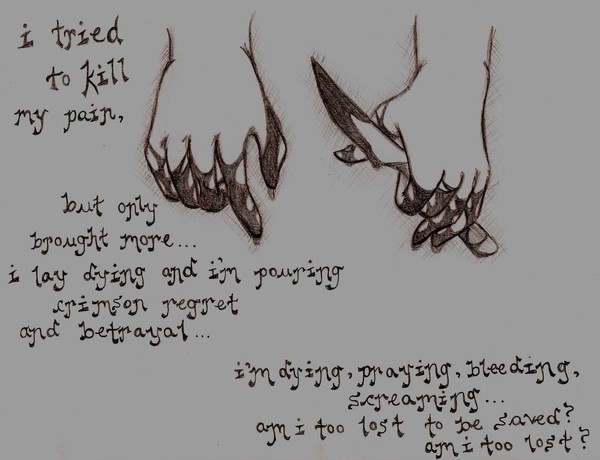 i tried
to kill
my pain,
but only
brought more...
i lay dying and i'm pouring
crimson regret
and betrayal...
i'm dying, praying, bleeding,
screaming...
am i too lost to be saved?
am i too lost?